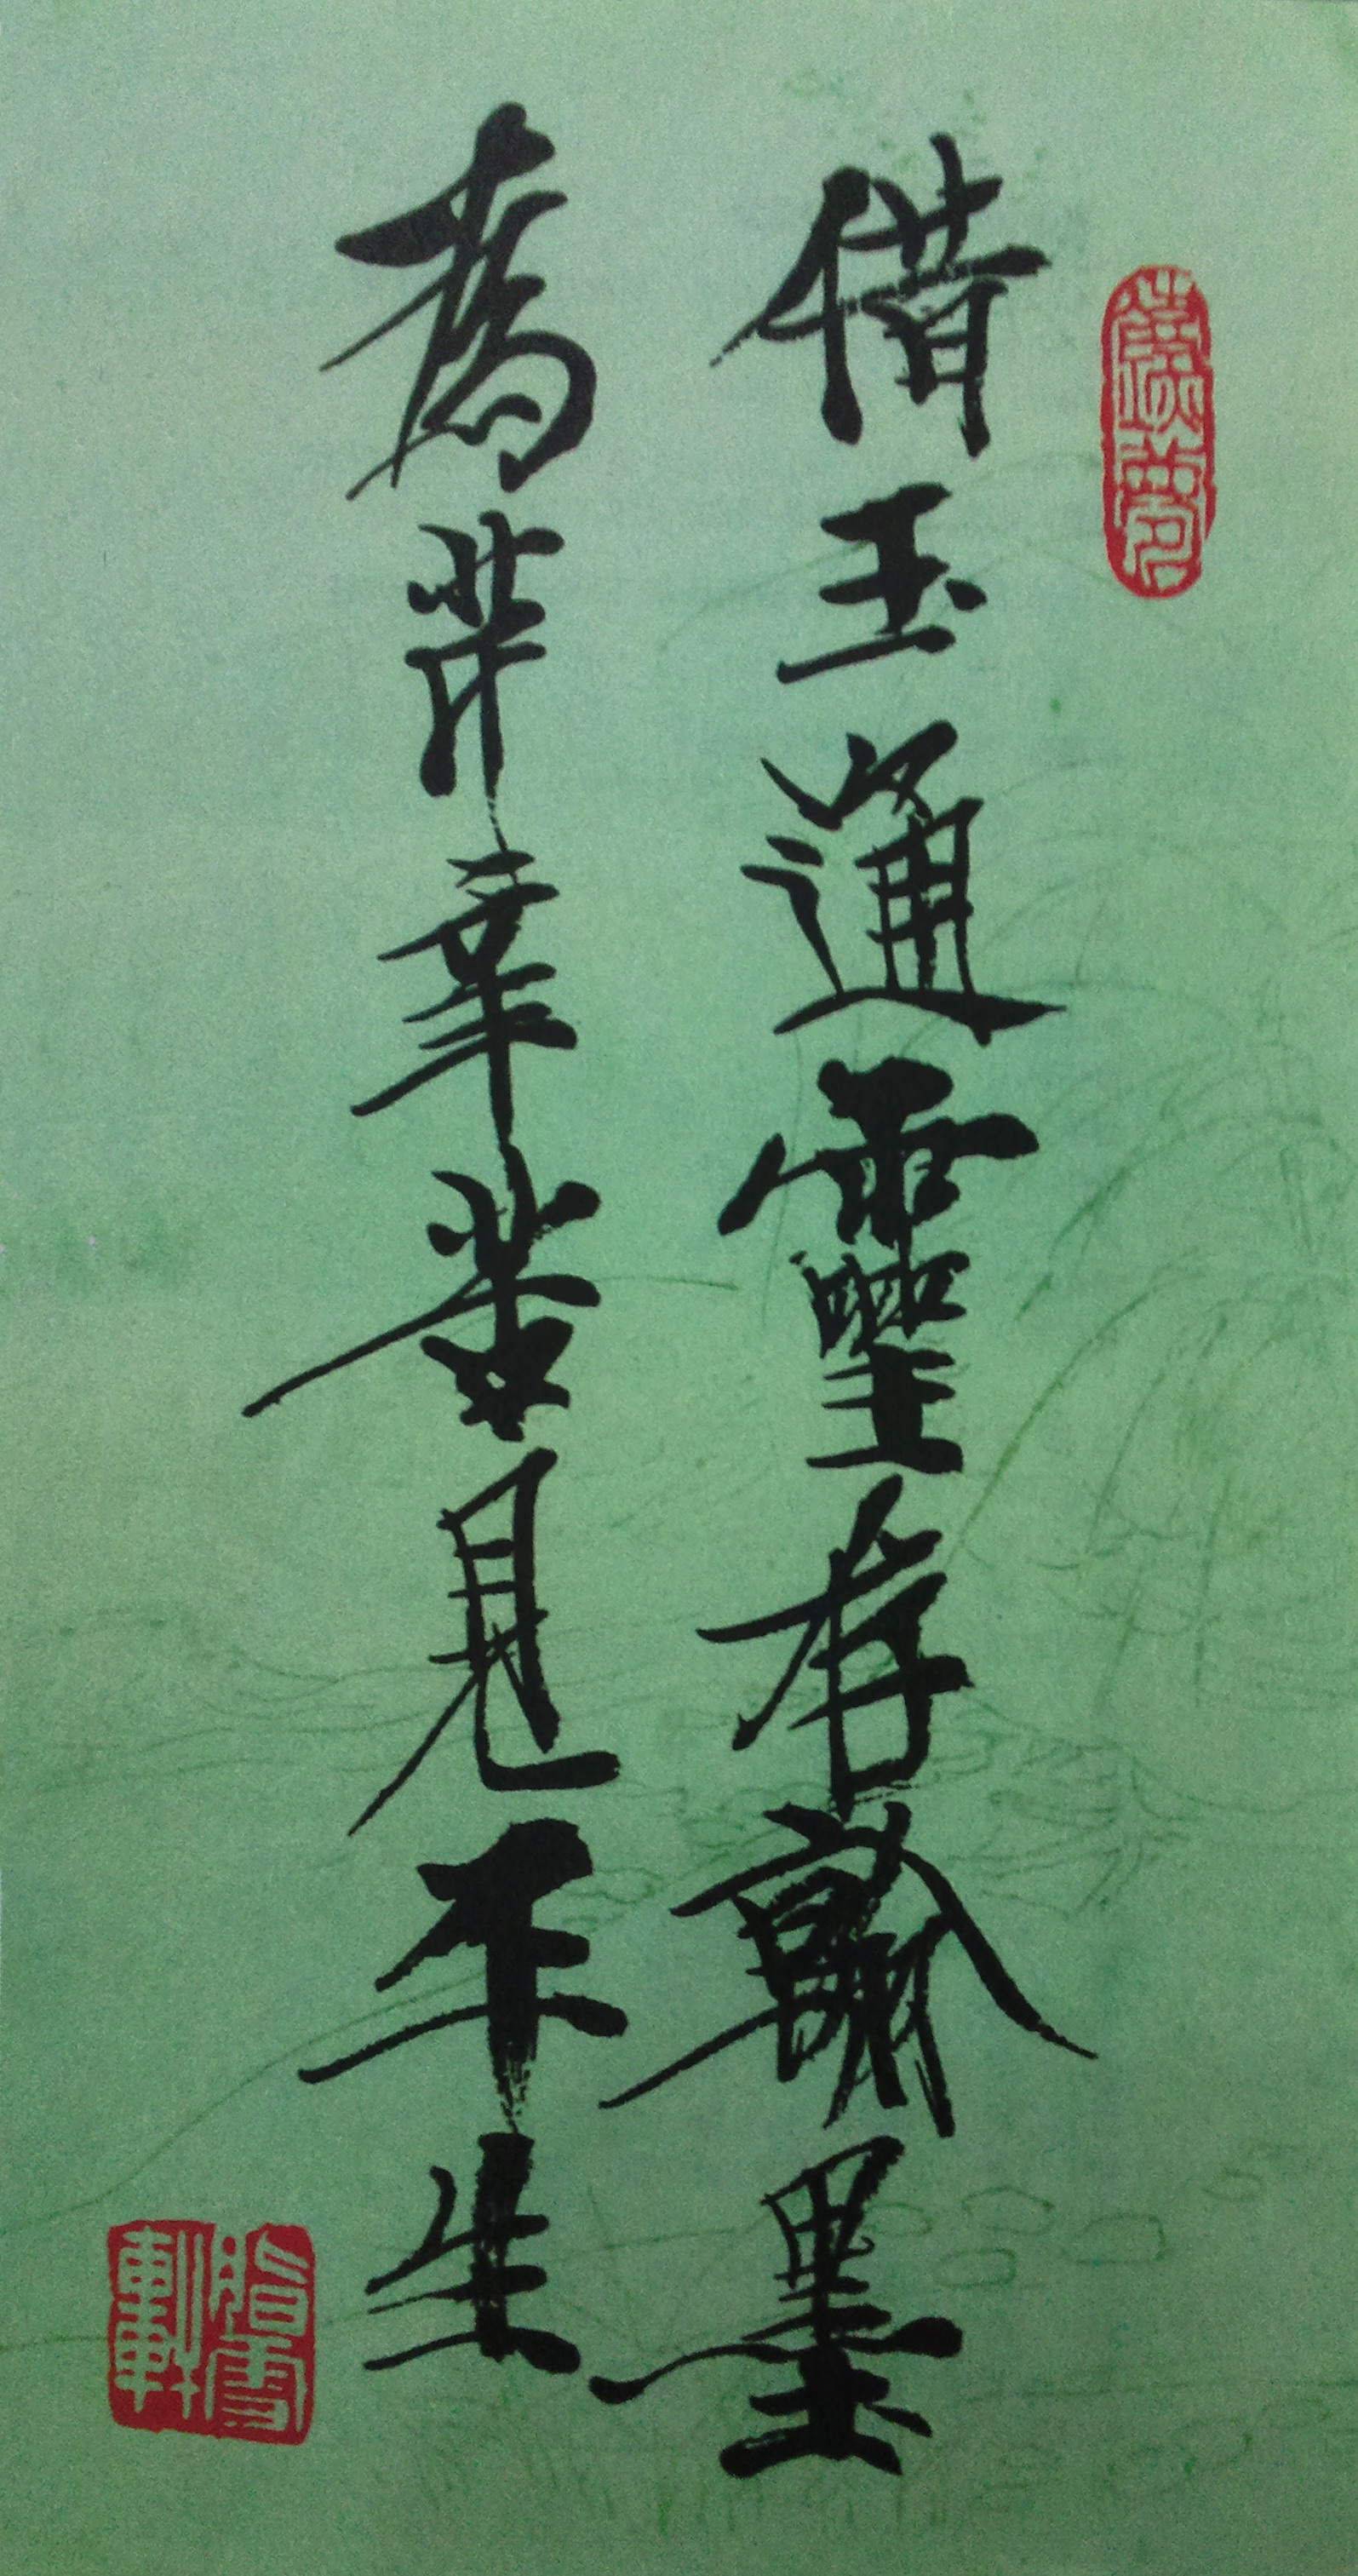 借玉通靈存翰墨
為芹辛苦見平生
脂雪軒